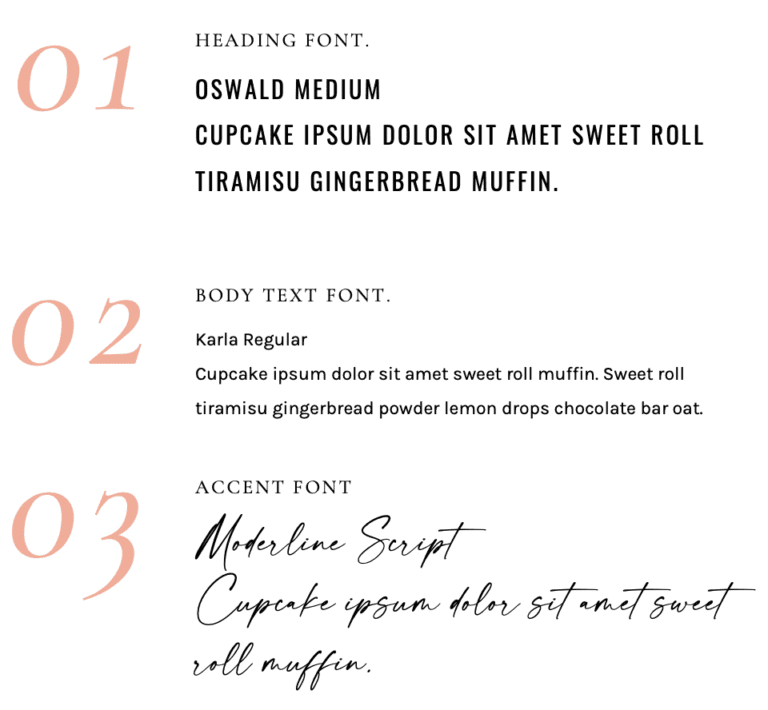 01
HEADING FONT.
OSWALD MEDIUM
CUPCAKE IPSUM DOLOR SIT AMET SWEET ROLL
TIRAMISU GINGERBREAD MUFFIN.
02
BODY TEXT FONT.
Karla Regular
Cupcake ipsum dolor sit amet sweet roll muffin. Sweet roll
tiramisu gingerbread powder lemon drops chocolate bar oat.
03
ACCENT FONT
Moderline Script
Cupcake ipsum dolor sit amet sweet
roll muffin.